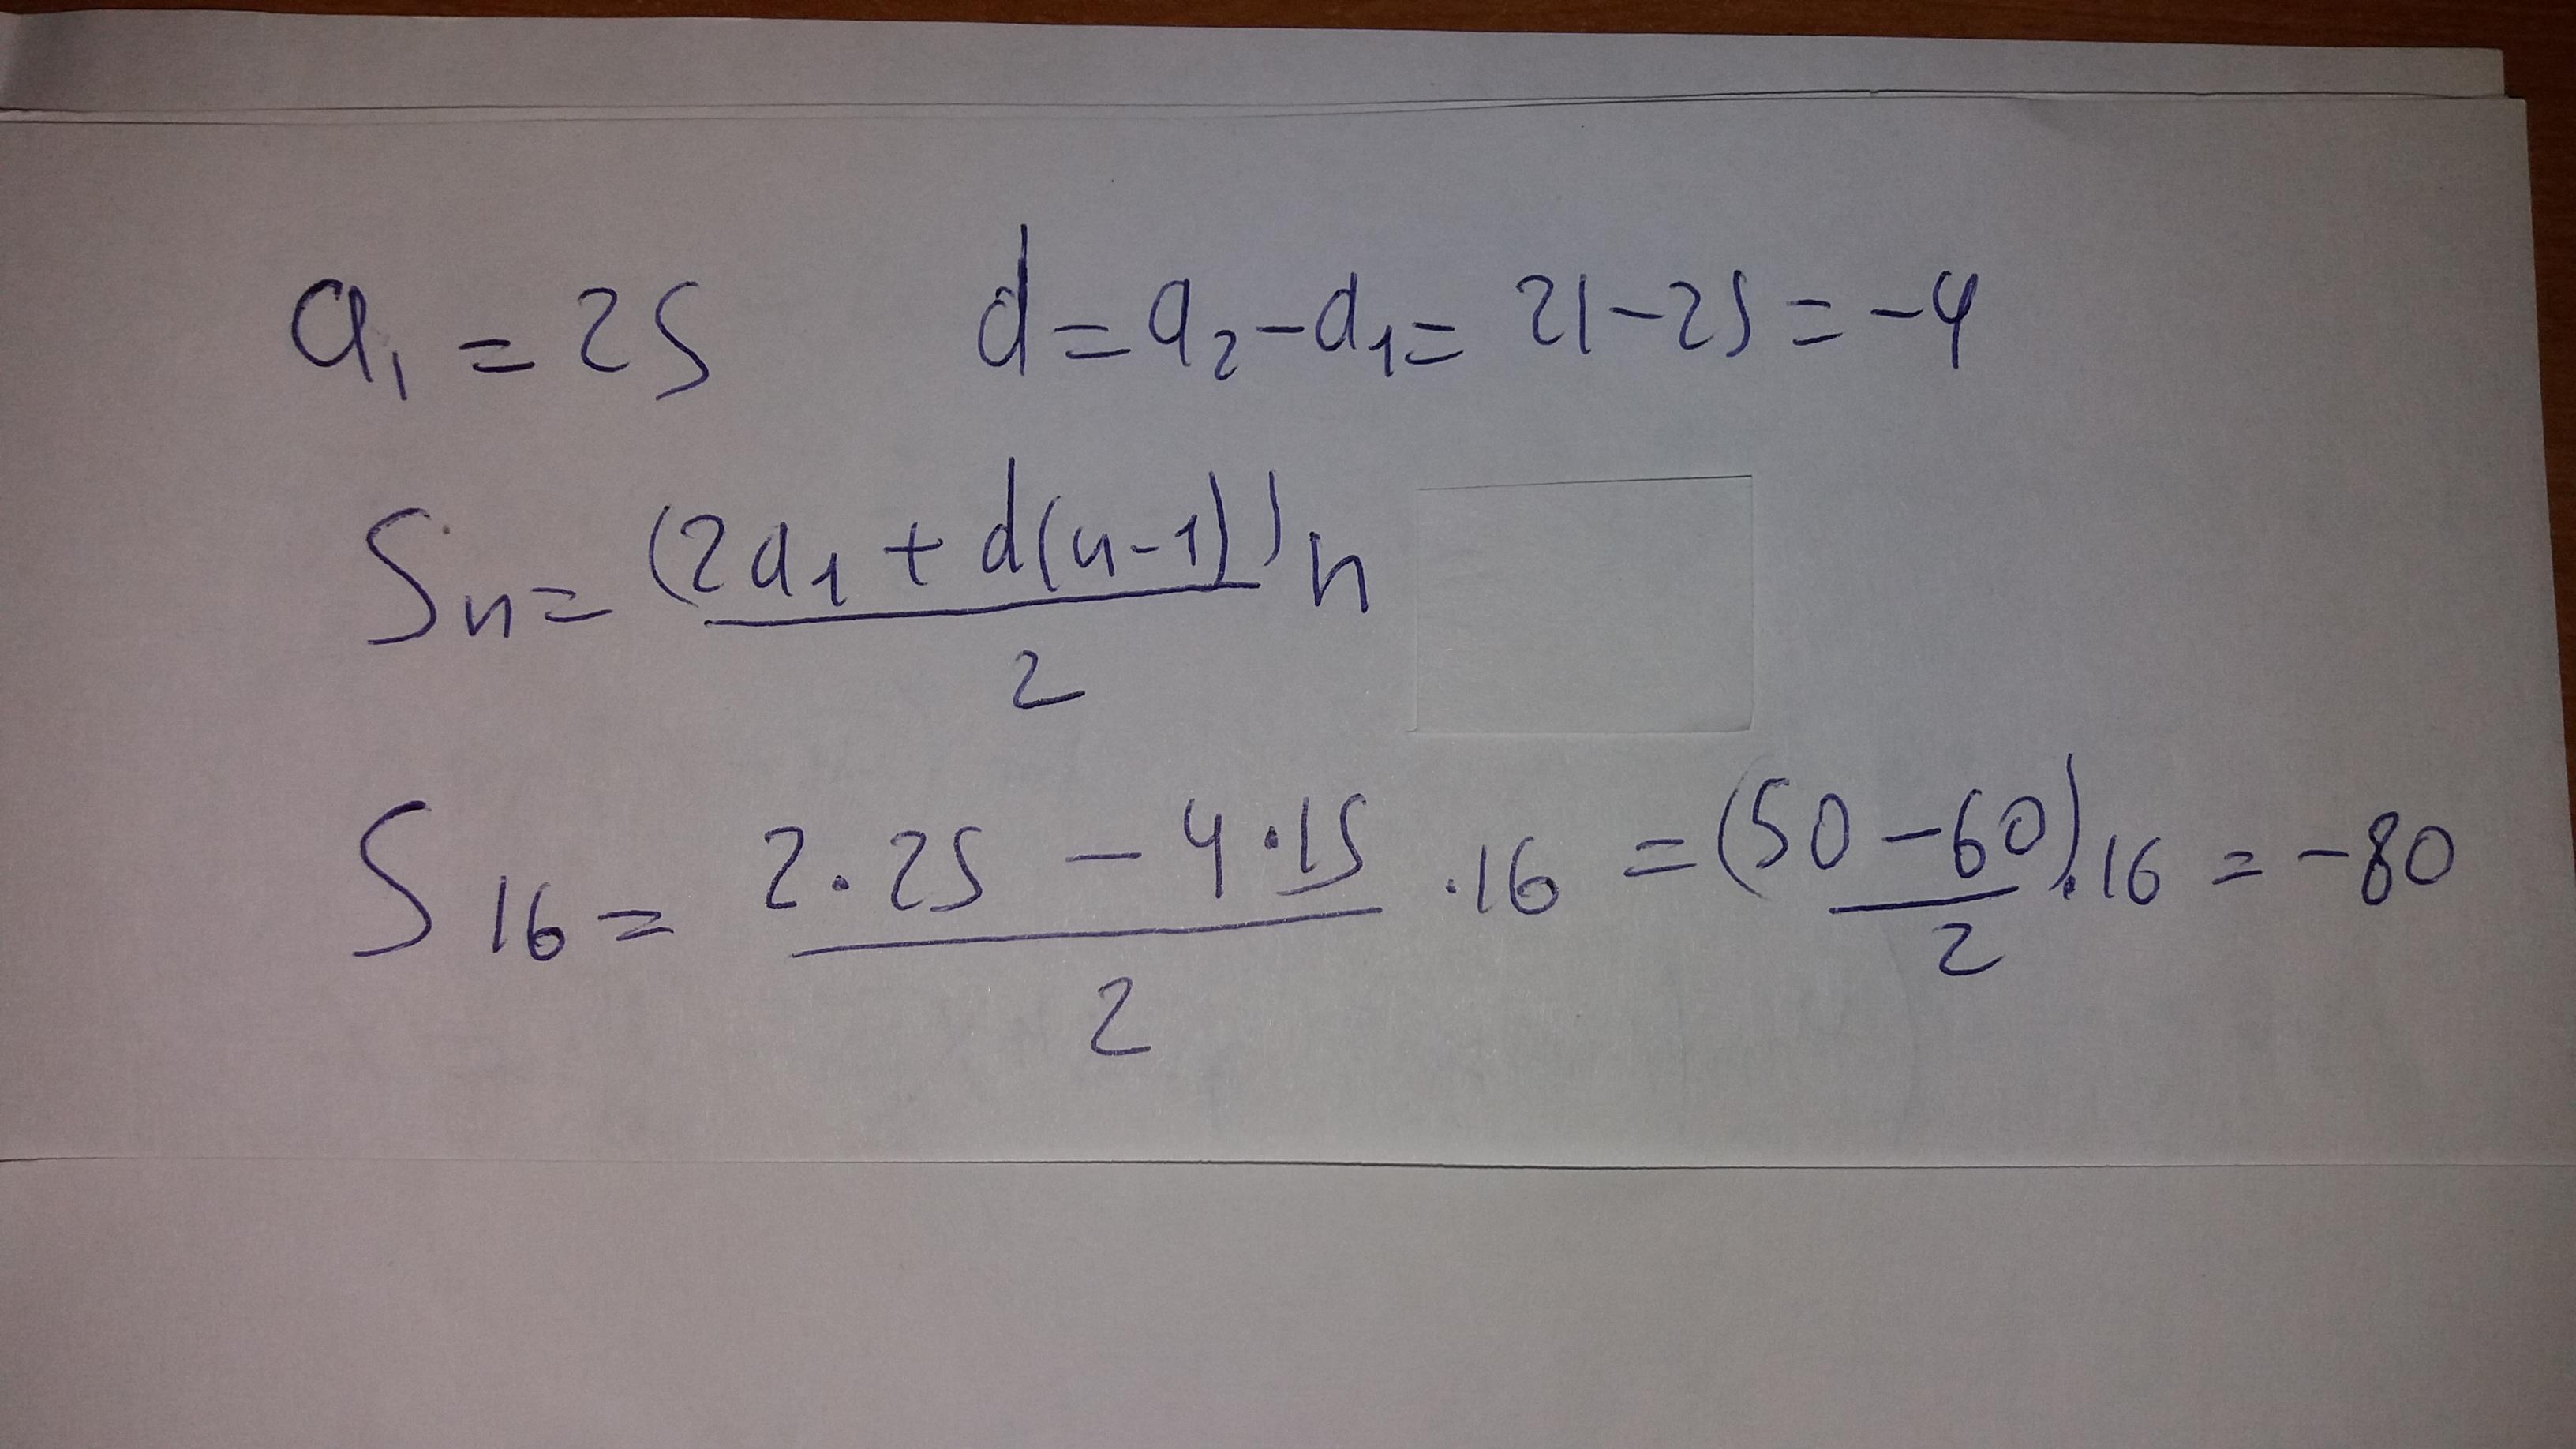 a₁ = 25 d = a₂ - a₁ = 21 - 25 = -4
Sn = (2a₁ + d(n-1))/2 n
S₁₆ = (2·25 - 4·15)/2 ·16 = (50 - 60)/2 ·16 = -80